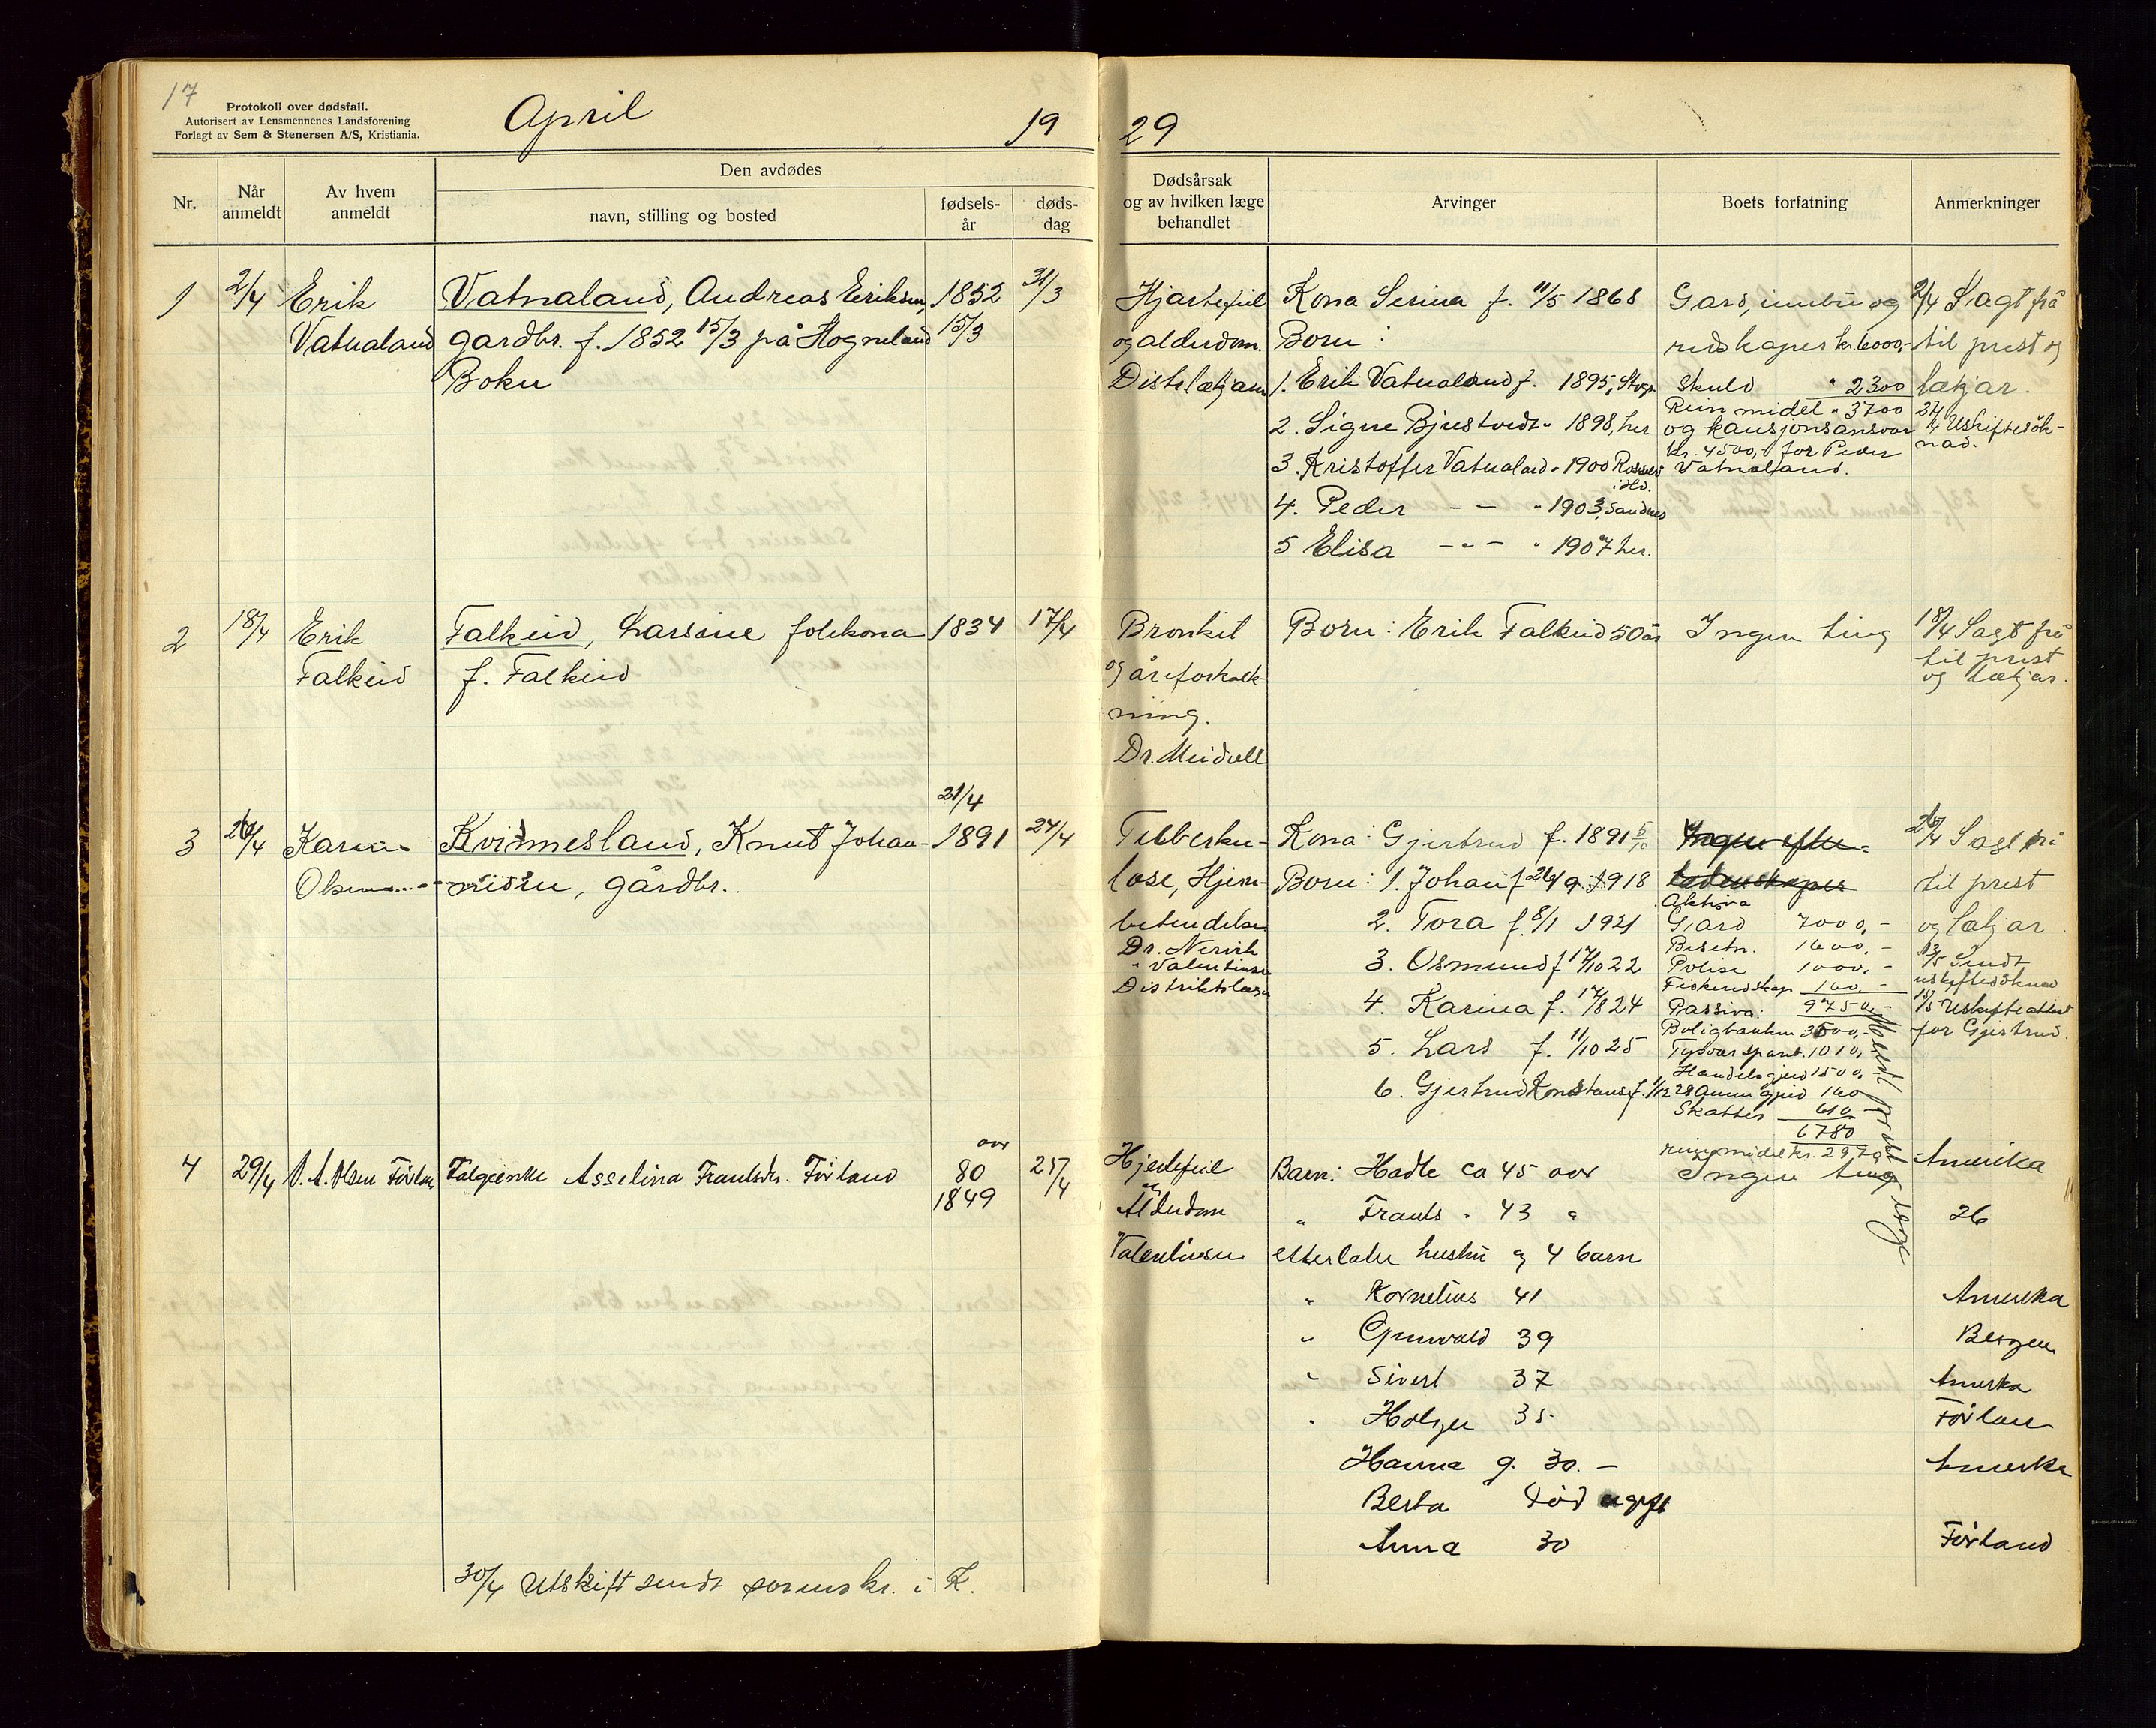 17
Protokoll over dødsfall.
Autorisert av Lensmennenes Landsforening
Forlagt av Sem & Stenersen A/S, Kristiania.
April 19 29
Nr.
Når anmeldt
Av hvem anmeldt
Den avdødes
navn, stilling og bosted
fødsels-år
døds-dag
Dødsårsak og av hvilken læge behandlet
Arvinger
Boets forfatning
Anmerkninger
1 2/4 Erik Vatnaland, Andreas Eriksen, 1852 31/3
Vatnaland gardbr. f. 1852 15/3 på Hognaland 15/3
Bokn
Hjartefeil
og alderdom.
Kona Serina f. 11/5 1868
Born:
1. Erik Vatnaland f. 1895,
2. Signe Bjustvedt " 1898, her
3. Kristoffer Vatnaland " 1900
4. Peder — — " 1903, Sandnes
5 Elisa — " — " 1907 her.
Gard, innbu og
redskaper kr. 6000,-
Skuld " 2300
Rein midel " 3700
og kausjonsansvar
kr. 4500,- for Peder
Vatnaland.
2/4 Sagt frå
til prest og
lækjar.
27/4 Uskiftesøk-
nad.
2 18/4 Erik Falkeid, Larsine folekona 1834 17/4
Falkeid f. Falkeid
Bronkit
og åreforkalk-
ning.
Dr. Meidell
Born: Erik Falkeid 50 år
Ingen ting
18/4 Sagt frå
til prest
og lækjar.
21/4
3 26/4 Olsen Kvidmesland, Knut Johan- 1891 24/4
gårdbr.
Tubberku-
lose, Hjerne-
betendelse.
Dr. Nervik
" Valentinsen
Kona: Gjertrud f. 1891 5/10
Born: 1. Johan f. 1918
2. Tora f. 8/1 1921
3. Osmund f. 22
4. Karina f. 17/8 24
5. Lars f. 11/10 25
6. Gjertrud Konstanse f. 28
Aktiva
Gard 7000,-
Besetn. 1600,-
Polise 1000,-
Fiskeredskap
Passiva: 9750,-
Boligbanken 3500,-
Tysvær sparb. 1010,-
Handelsgjeld 1500,-
Annen gjeld 160
Skatter 610
6780
rein midel kr. 2970
26/4 Sagt frå
til prest
og lækjar.
13/5 Sendt
uskiftesøknad
15/5 Uskifteattest
for Gjertrud.
4 29/4 Olsen Førland Falgeenke Asselina Frantsdr. Førland 80 aar 1849 25/4
Hjertefeil
og
Alderdom
Valentinsen
Barn: Hadle ca 45 aar Amerika
" Frants " 43 " 26
etterlater hustru og 4 barn
" Kornelius 41 Amerika
" 39 Bergen
" Sivert 37 Amerika
" Holger 35 Førland
Hanna g. 30. — Amerika
Berta Død ugift
Anna 30 Førland
Ingen ting
30/4 Utskift sendt sorenskr. i K.